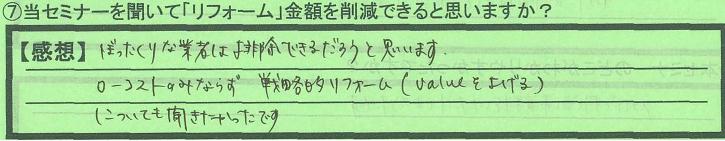 ⑦当セミナーを聞いて「リフォーム」金額を削減できると思いますか？
【感想】ぼったくりな業者は排除できるだろうと思います.
ローコストのみならず 戦略的リフォーム（valueを上げる）
についても聞きたかったです